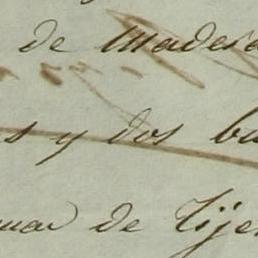 de Madera
s y dos ba
mar de Tije